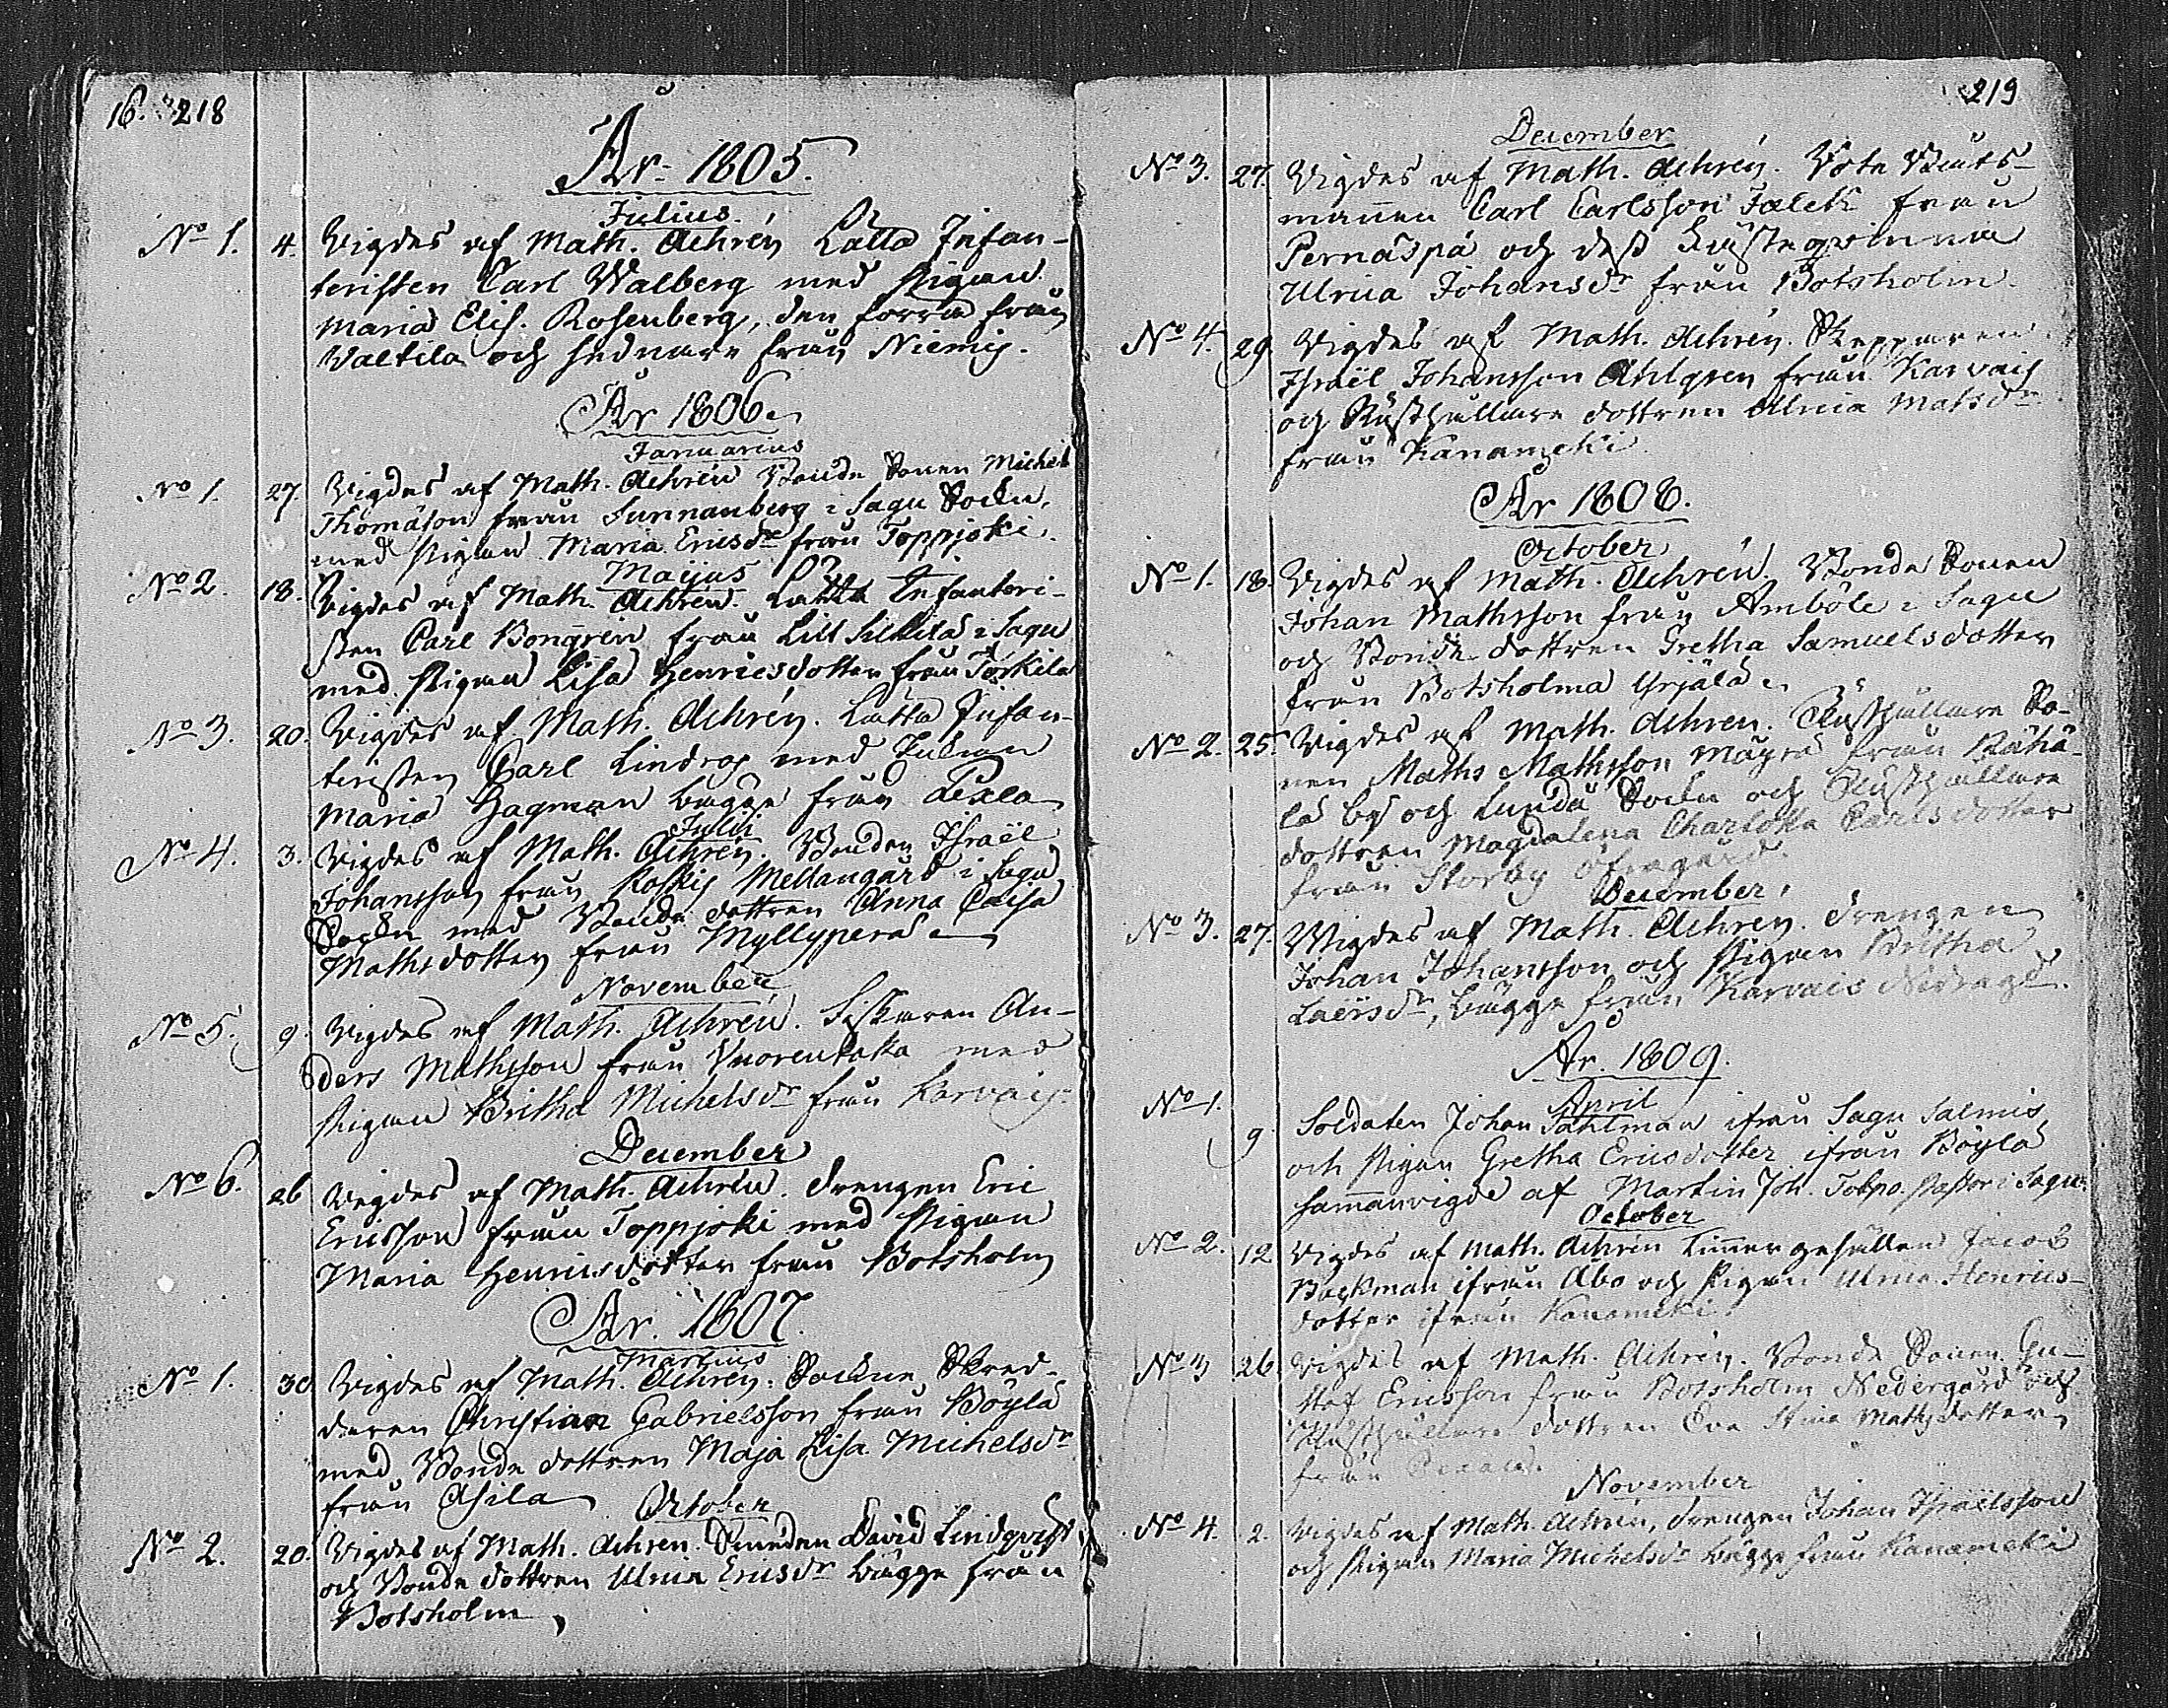 16. 218
År 1805.
Julius.
No 1. 4. Vigdes af Math. Achrén Lätta Infan-
teristen Carl Walberg med Pigan
Maria Elis. Rosenberg, den förra från
Valtila och sednare från Niemis.
År 1806.
Januarius
No 1. 27. Vigdes af Math. Achrén Bonde Sonen Michel
Thomäson från Sunnanberg i Sagu Sockn,
med Pigan Maria Ericsdr från Toppjoki.
Majus
No 2. 18. Vigdes af Math. Achrén. Lätta Infanteri-
sten Carl Bongren från Lill i Sagu
med Pigan Lisa Henricsdotter från Torkila
No 3. 20. Vigdes af Math. Achrén. Lätta Infan-
teristen Carl Lindros med Enkan
Maria Hagman bägge från Pexla
Julii
No 4. 3. Vigdes af Math. Achrén. Bonden Israël
Johansson från Koskis Mellangård i Sagu
Sockn med Bonde dottren Anna Caisa
Mathsdotter från Myllyperä
November
No 5. 9. Vigdes af Math. Achrén. Fiskaren An-
ders Mathsson från Vuorentaka med
Pigan Britha Michelsdr från Karvais.
December
No 6. 26 Vigdes af Math. Achrén. Drengen Eric
Ericsson från Toppjoki med Pigan
Maria Henricsdotter från Botsholm
År. 1807.
Martius
No 1. 30 Vigdes af Math. Achrén. Sockne Skred-
daren Christian Gabrielsson från Böylä
med Bonde dottren Maja Lisa Michelsdr
från Asila
October
No 2. 20. Vigdes af Math. Achren. Smeden David Lindqvist
och Bonde dottren Ulrica Ericsdr bägge från
Botsholm
219
December
No 3. 27. Vigdes af Math. Achrén. Båts-
mannen Carl Carlsson Falck från
Pernäspä och dess
Ulrica Johansdr från Botsholm.
No 4. 29 Vigdes af Math. Achrén. Skepparen
Israël Johansson Ahlgren från Karvais
och Rusthållare dottren Ulrica Matsdr
från Kanamäki
År 1808.
October
No 1. 18. Vigdes af Math. Achrén. Bonde Sonen
Johan Mathsson från Amböle i Sagu
och Bonde dottren Gretha Samuelsdotter
från Botsholma Yrjälä
No 2. 25. Vigdes af Math. Achrén. Rusthållare So-
nen Maths Mathsson Mägrä från
la by och Lundå Sockn och Rusthållare
dottren Magdalena Charlotta Carlsdotter
från Storby Öfvragård.
December
No 3. 27. Vigdes af Math. Achrén. Drengen
Johan Johansson och Pigan Britha
Laërsdr, bägge från Karvais Nedragd.
År. 1809.
April
No 1. 9 Soldaten Johan Sahlman ifrån Sagu Salmis
och Pigan Gretha Ericsdotter ifrån Böylä
sammanvigde af Martin Joh. Tolpo. Pastor i Sagu.
October
No 2. 12 Vigdes af Math. Achrén Timmer gesällen Jacob
Backman ifrån Åbo och Pigan Ulrica Henrics-
dotter ifrån Kanamäki
No 3 26 Vigdes af Math. Achrén. Bonde Sonen Gu-
staf Ericsson från Botsholm Nedergård och
Rusthållare dottren Eva Stina Mathsdotter
från
November
No 4. 2. Vigdes af Math. Achrén, Drengen Johan Israëlsson
och Pigan Maria Michelsdr bägge från Kanamäki